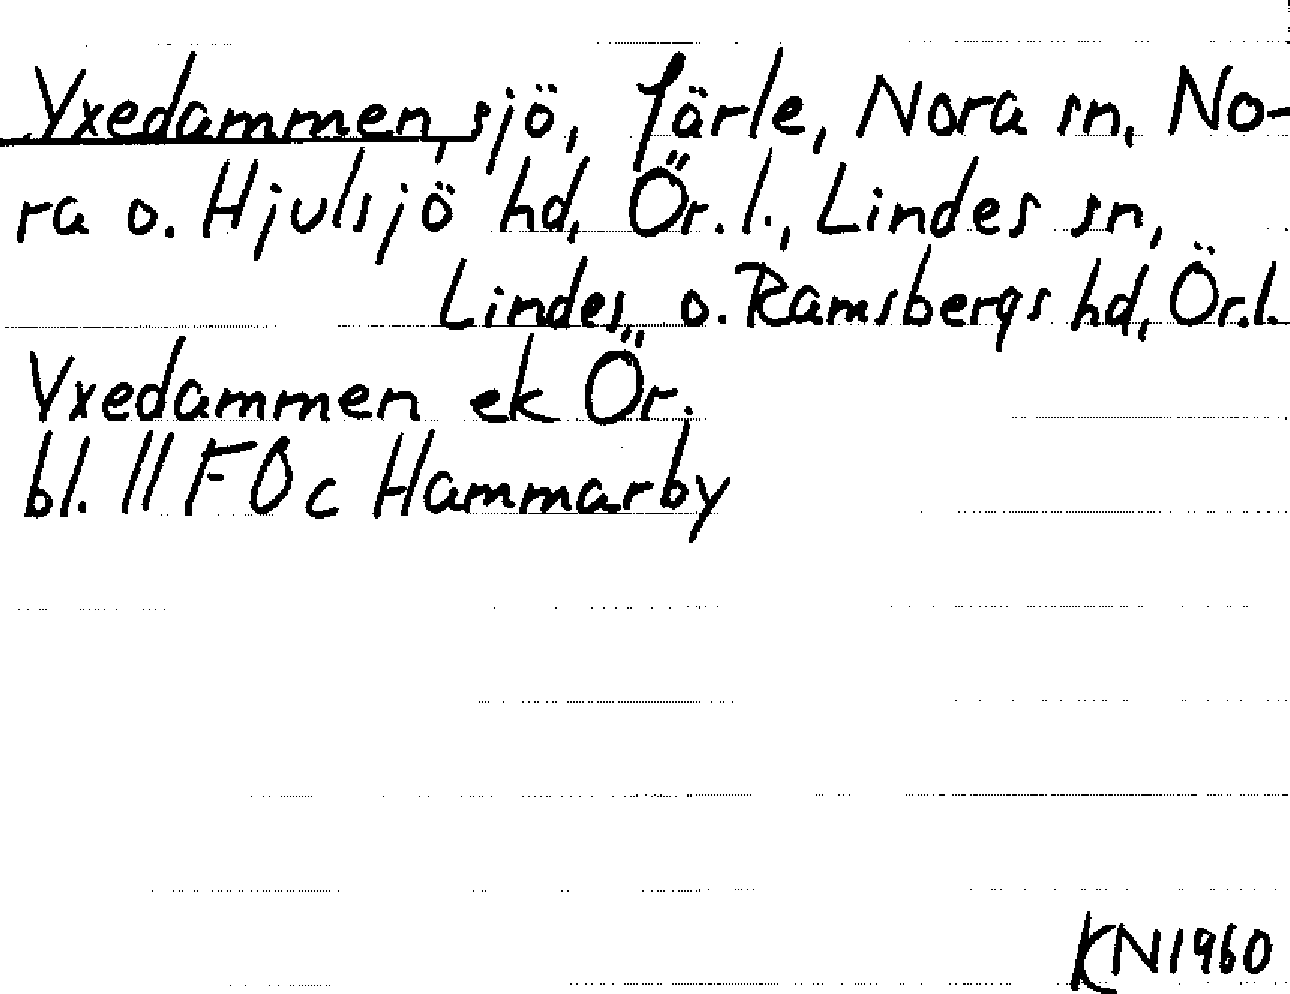 Yxedammen, sjö, Järle, Nora sn, No-
ra o. Hjulsjö hd, Ör. l., Lindes sn,
Lindes o. Ramsbergs hd, Ör.l.
Yxedammen ek Ör.
bl. 11 F Ö c Hammarby
KN1960